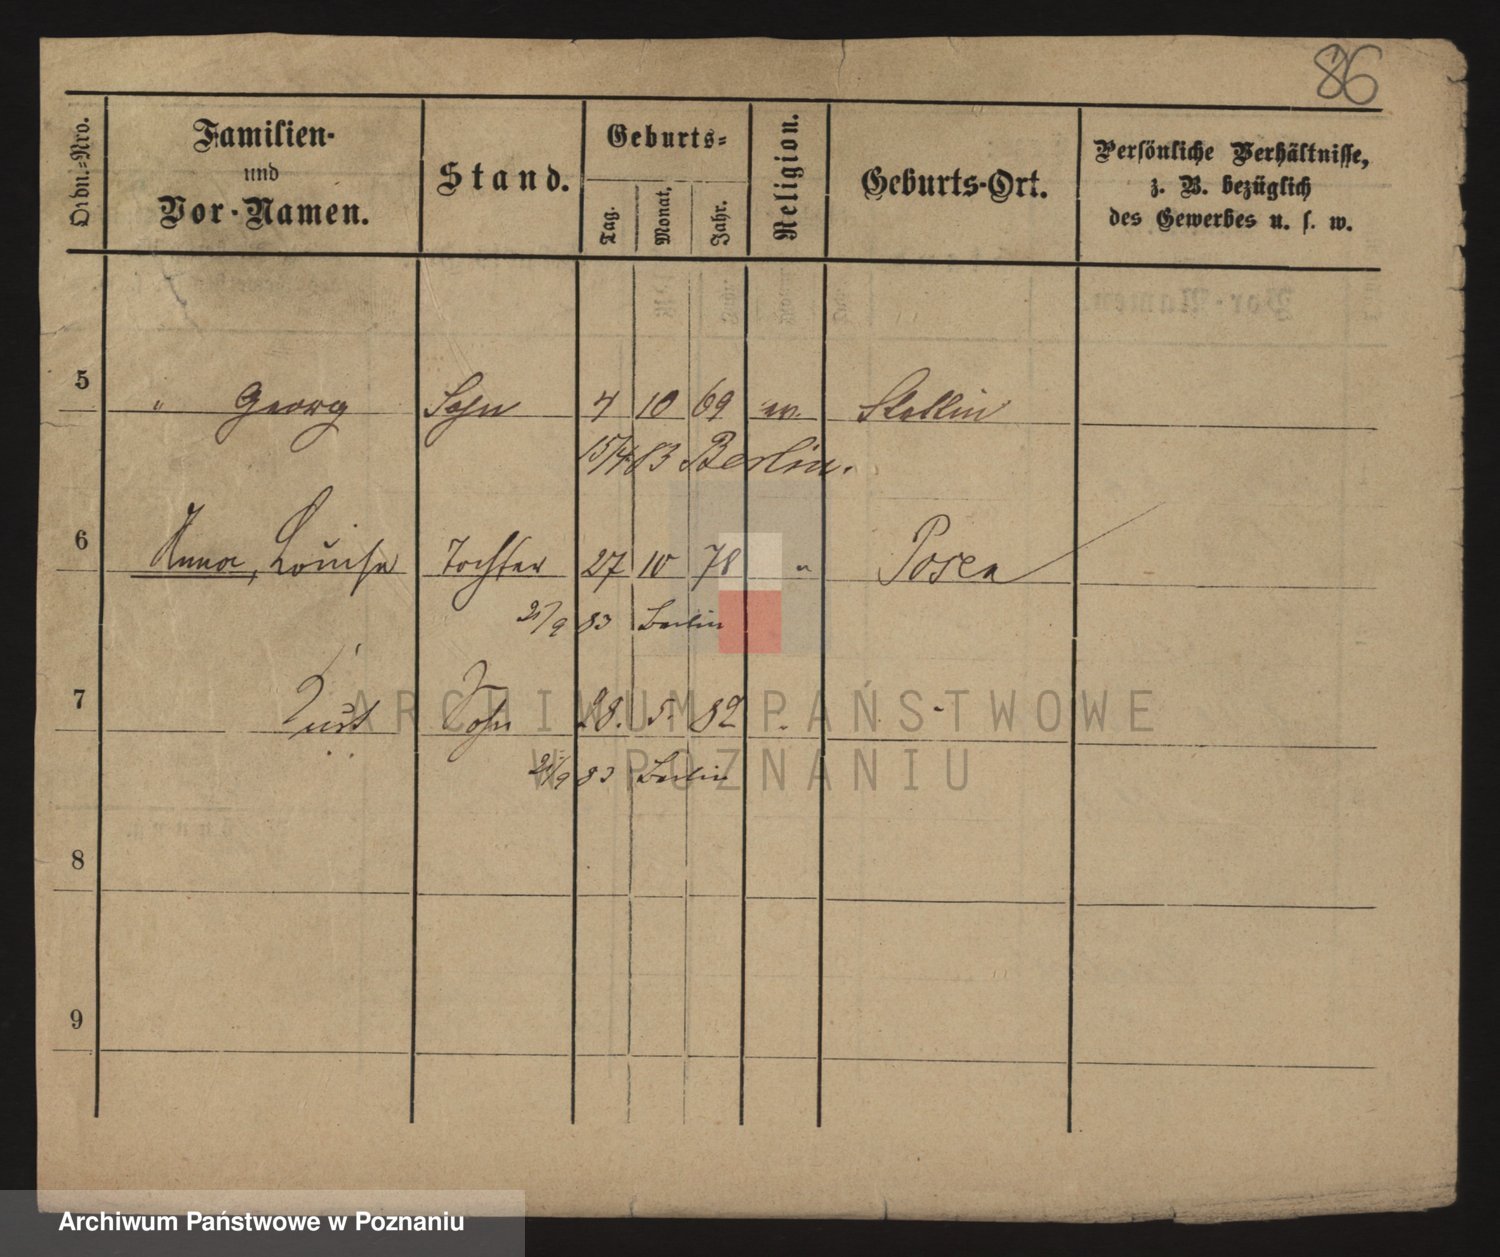 86
Ordn.-Nro.
Familien-
und
Vor-Namen.
Stand.
Geburts-
Tag.
Monat.
Jahr.
Religion.
Geburts-Ort.
Persönliche Verhältnisse,
z. B. bezüglich
des Gewerbes u. s. w.
5 " Georg Sohn 4 10 69 ev. Stettin
15/4 83 Berlin.
6 Anna, Louise Tochter 27 10 78 " Posen
21/9 83 Berlin
7 Kurt Sohn 28. 5. 82 " "
21/9 83 Berlin
8
9
ARCHIWUM PAŃSTWOWE
W POZNANIU
Archiwum Państwowe w Poznaniu